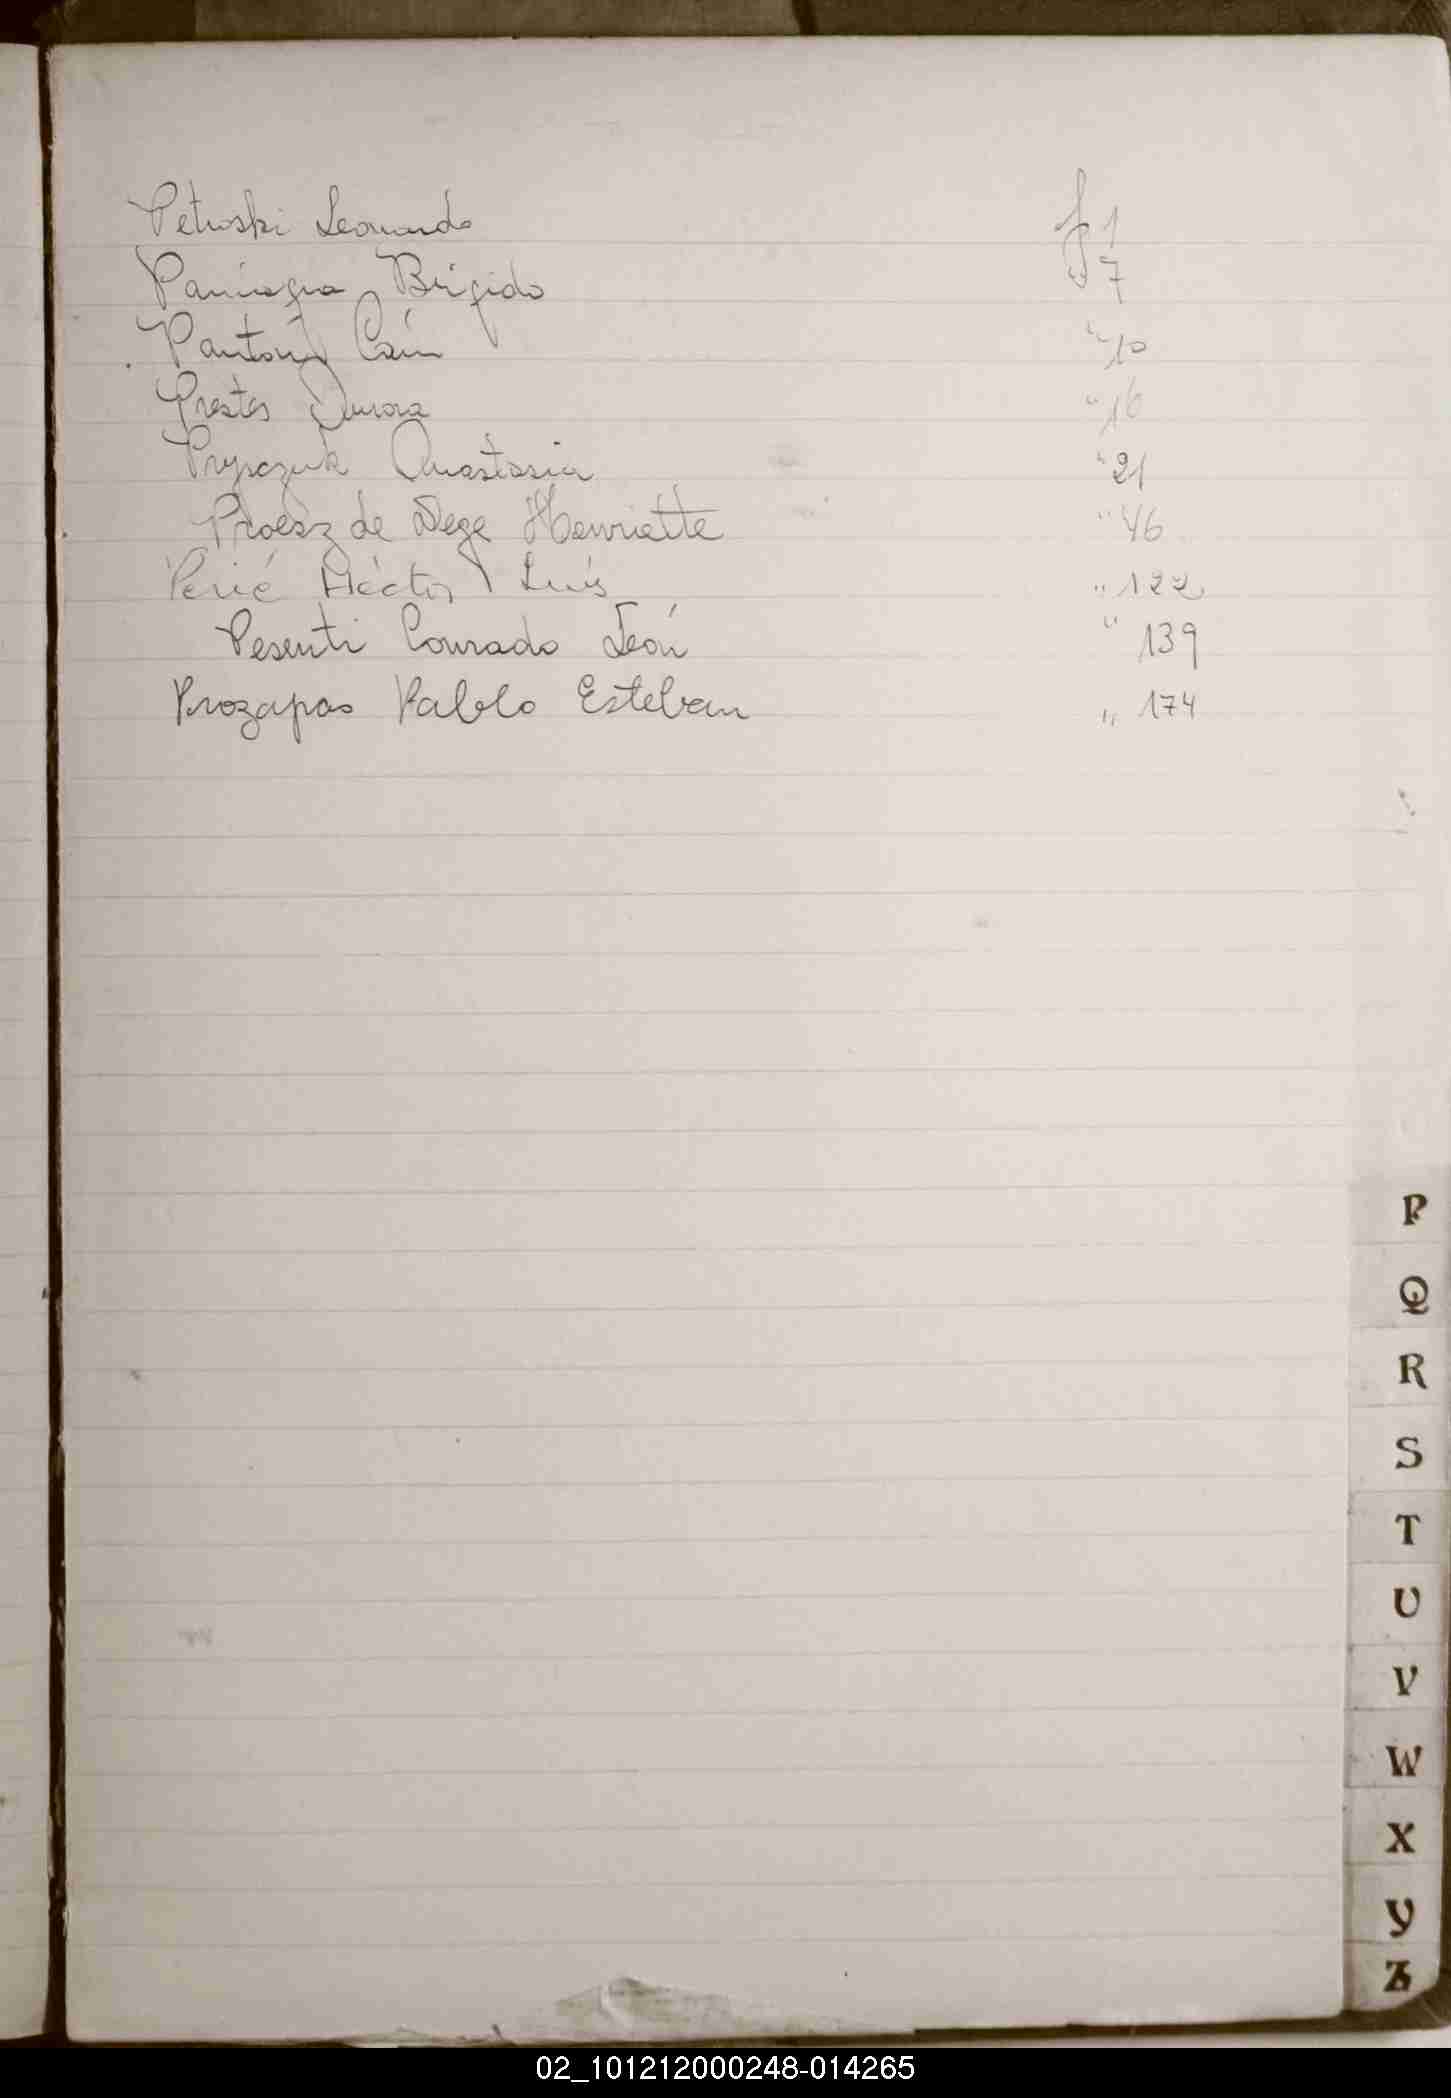 Petroski Leonardo f 1
Paniagua Brígido f 7
Pantoni Caín " 10
Prestes Aurora " 16
Prypczuk Anastasia " 21
Proesz de Dege Henriette " 46
Perié Héctor Luis " 122
Pesenti Conrado León " 139
Prozapas Pablo Esteban " 174
P
Q
R
S
T
U
V
W
X
Y
Z
02_101212000248-014265